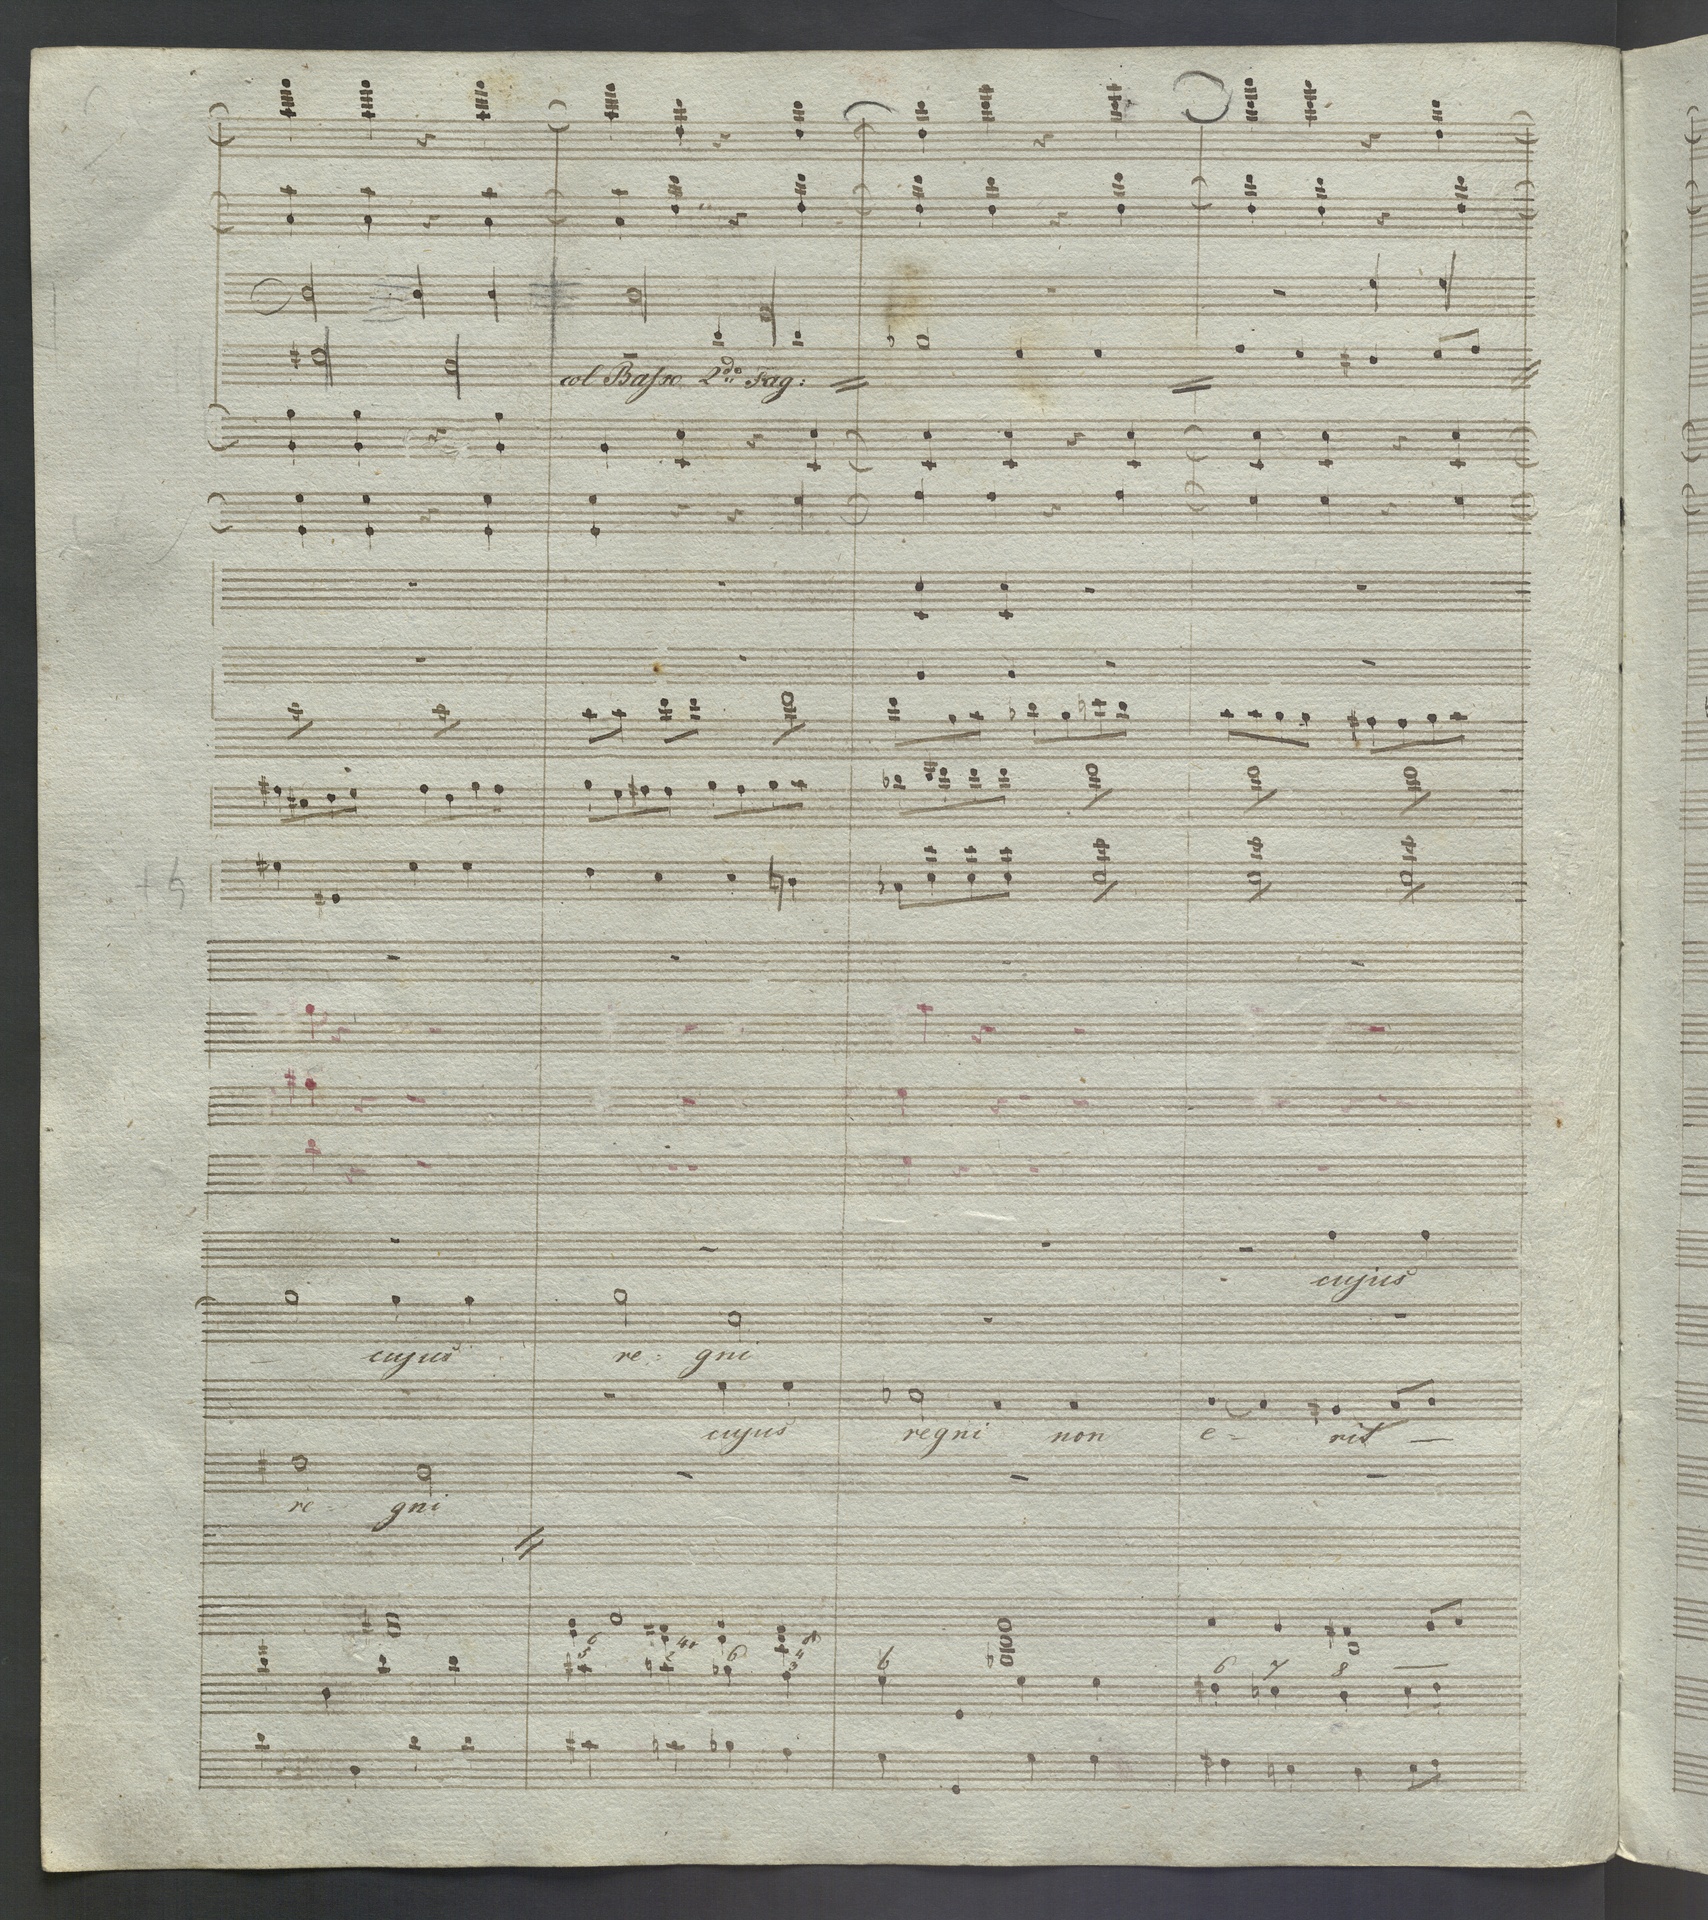 col Basso 2do Fag:
cujus
cujus re- gni
cujus regni non e- rit
re- gni
6 4+ 6
5 2
6
6 7 8